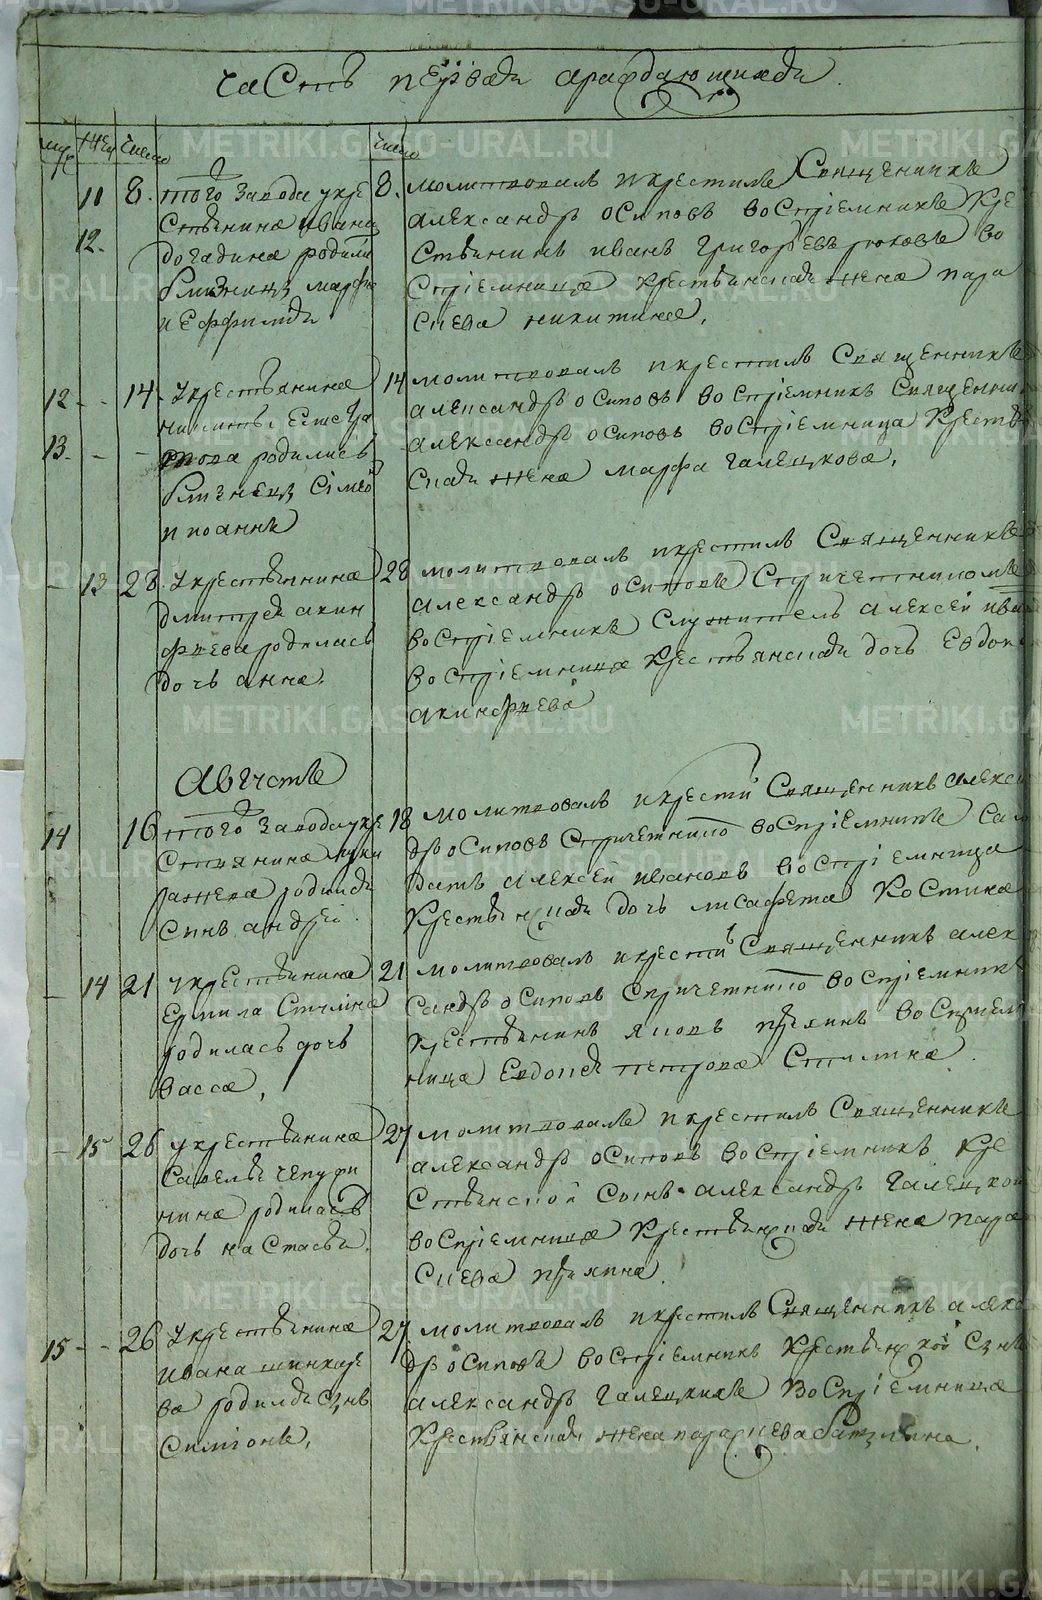 часть первая ораждающихся
муж жен число число
11 8. того завода у кре
12. стьянина ивана
догадина родили
близницы марфа
и Еффимия
8. молитвовалъ и крестилъ Священникъ
александръ осиповъ воспріемникъ кре
стьянинъ иванъ григорьевъ воспріемница
крестьянская жена пара
скева никитина,
12 - - 14. у крестьянина
никиты
13. - - родились
близнецы Сімео
и иоаннъ
14 молитвовалъ и крестилъ Священникъ
александръ осиповъ воспріемникъ Священни
александръ осиповъ воспріемница крестья
ская жена марфа галецкова,
- 13 28. у крестьянина
дмитрея акин
фиева родилась
дочь анна,
28 молитвовалъ и крестилъ Священникъ
александръ осиповъ Спричетникомъ
воспріемникъ Служитель алексей ива
воспріемница крестьянская дочь Евдок
акинфиева
Августъ
14 16 того завода у кре
стиянина луки
ражева родился
Сынъ андрей.
18 молитвовалъ и крести Священникъ алекса
дръ осиповъ Спричетнико воспріемникъ Сал
датъ алексеи ивановъ воспріемница
крестьянская дочь лисафета Костина
- 14 21 у крестьянина
Ермила Стулина
родилась дочь
васса,
21 молитвовалъ и крести Священникъ алек
сандръ осиповъ Спричетнико воспріемникъ
крестьянинъ яковъ воспріем
ница Евдокея петрова Стулина.
- 15 26 у крестьянина
Савелья чепури
нина родилась
дочь настасья.
27 молитвовалъ и крестилъ Священникъ
александръ осиповъ воспріемникъ кре
стьянской Сынъ александръ галецкой
воспріемница крестьянская жена пара
скева
15 - - 26 у крестьянина
ивана шинкаре
ва родился Сынъ
Симіонъ,
27 молитвовалъ и крестилъ Священникъ алекса
дръ осиповъ воспріемникъ крестьянской Сынъ
александръ галецкихъ воспріемница
крестьянская жена параскева